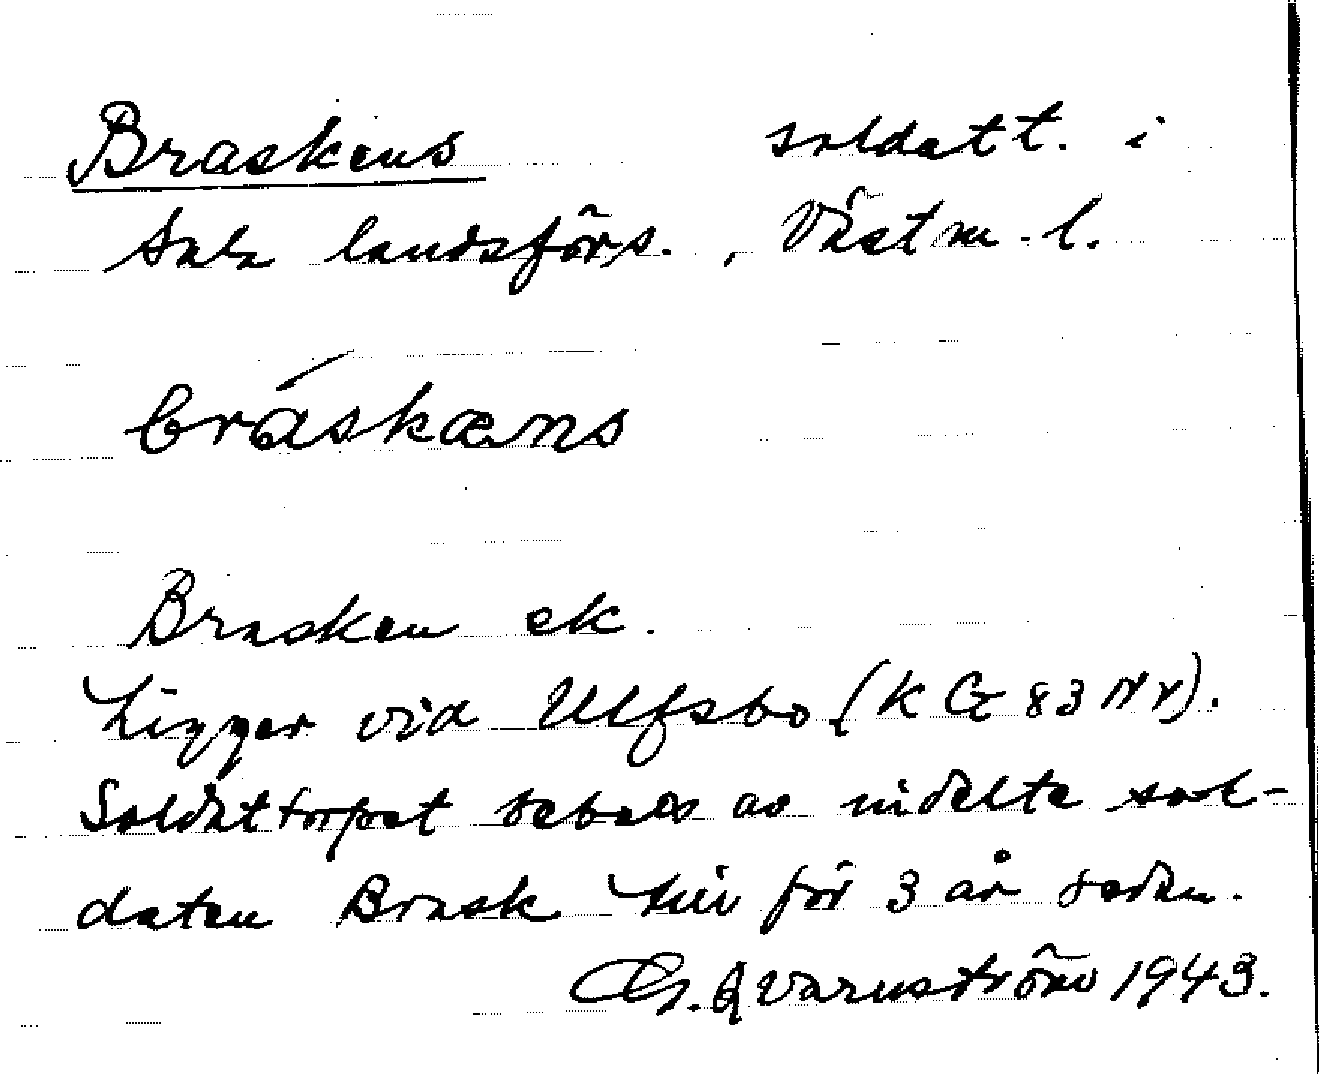 Braskens soldatt. i
Sala landsförs., Västm. l.
bráskæns
Brasken ek.
Ligger vid Ulfsbo (K G 83 NV).
Soldattorpet bebods av indelte sol-
daten Brask till för 3 år sedan.
G. Qvarnström 1943.